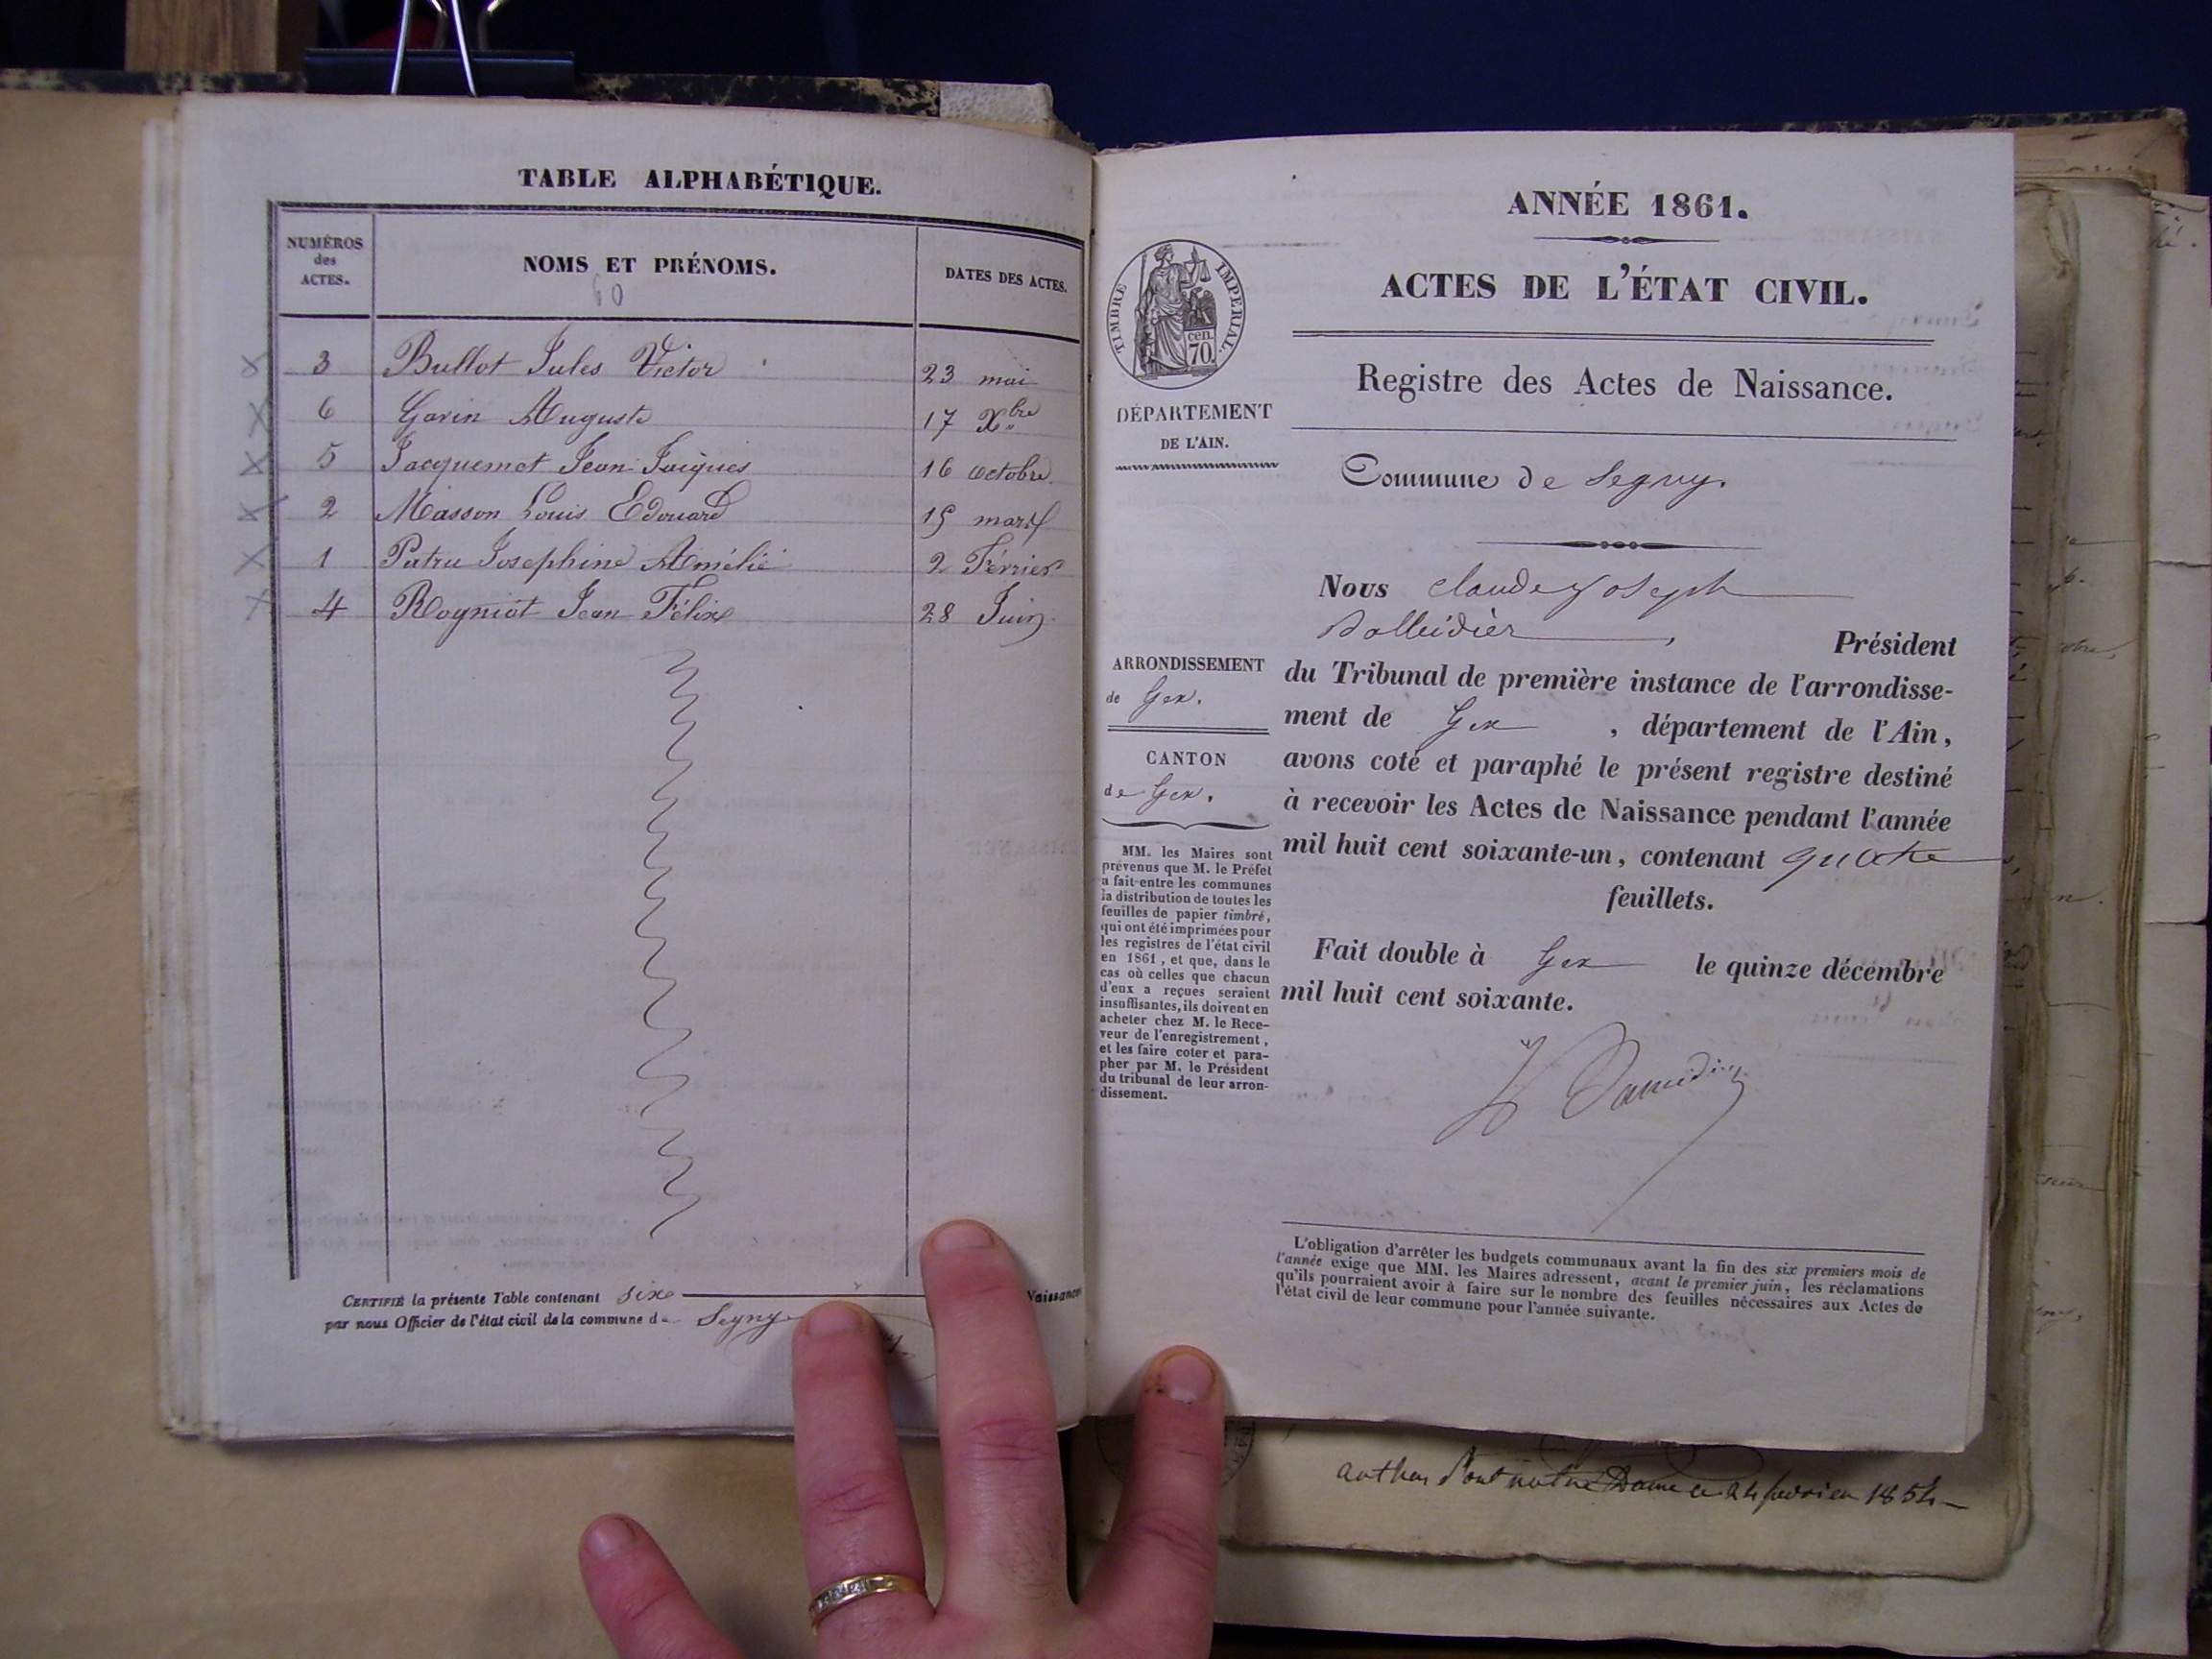 TABLE ALPHABÉTIQUE.
NUMÉROS
des
ACTES.
NOMS ET PRÉNOMS.
60
DATES DES ACTES.
3 Bullot Jules Victor 23 mai
6 Gavin Auguste 17 Xbre
5 Jacquemet Jean Jacques 16 octobre
2 Masson Louis Edouard 15 mars
1 Patru Josephine Amélie 2 Février
4 Rogniot Jean Félix 28 Juin
CERTIFIÉ la présente Table contenant six Naissances
par nous Officier de l'état civil de la commune de Segny
ANNÉE 1861.
ACTES DE L'ÉTAT CIVIL.
TIMBRE IMPÉRIAL.
cen.
70.
Registre des Actes de Naissance.
DÉPARTEMENT
DE L'AIN.
Commune de Segny.
Nous Claude Joseph
Président
ARRONDISSEMENT
de Gex.
du Tribunal de première instance de l'arrondisse-
ment de Gex, département de l'Ain,
CANTON
de Gex.
avons coté et paraphé le présent registre destiné
à recevoir les Actes de Naissance pendant l'année
mil huit cent soixante-un, contenant quatre
feuillets.
MM. les Maires sont
prévenus que M. le Préfet
a fait entre les communes
la distribution de toutes les
feuilles de papier timbré,
qui ont été imprimées pour
les registres de l'état civil
en 1861, et que, dans le
cas où celles que chacun
d'eux a reçues seraient
insuffisantes, ils doivent en
acheter chez M. le Rece-
veur de l'enregistrement,
et les faire coter et para-
pher par M. le Président
du tribunal de leur arron-
dissement.
Fait double à Gex le quinze décembre
mil huit cent soixante.
L'obligation d'arrêter les budgets communaux avant la fin des six premiers mois de
l'année exige que MM. les Maires adressent, avant le premier juin, les réclamations
qu'ils pourraient avoir à faire sur le nombre des feuilles nécessaires aux Actes de
l'état civil de leur commune pour l'année suivante.
Dame ce 24 1854